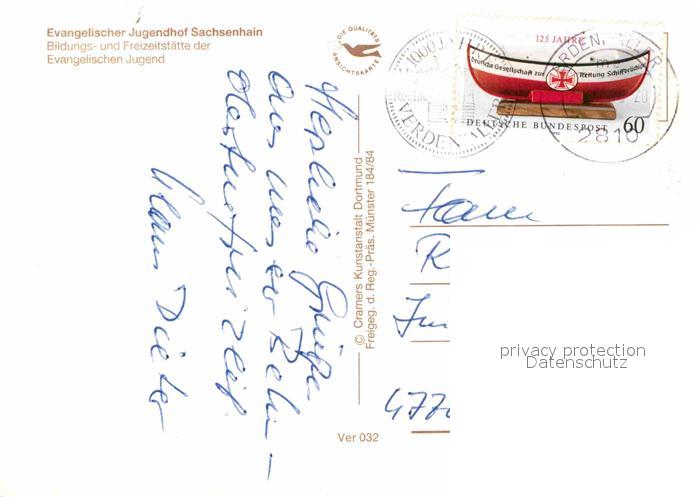 Evangelischer Jugendhof Sachsenhain
Bildungs- und Freizeitstätte der
Evangelischen Jugend
DIE QUALITÄTS
ANSICHTSKARTE
1000 JAHRE
VERDEN
125 JAHRE
Deutsche Gesellschaft zur Rettung Schiffbrüchiger
DEUTSCHE BUNDESPOST 60
VERDEN, ALLER
2810
Herzliche Grüße
aus unserer
Klaus Dieter
© Cramers Kunstanstalt Dortmund
Freigeg. d. Reg.-Präs. Münster 184/84
Fam
R
477
privacy protection
Datenschutz
Ver 032